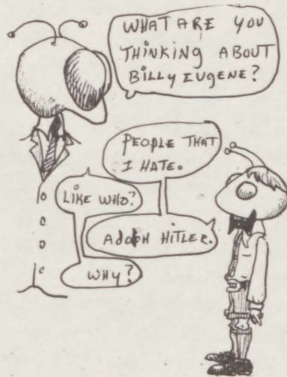 WHAT ARE YOU
THINKING ABOUT
BILLY EUGENE?
PEOPLE THAT
I HATE.
LIKE WHO?
ADOLPH HITLER.
WHY?